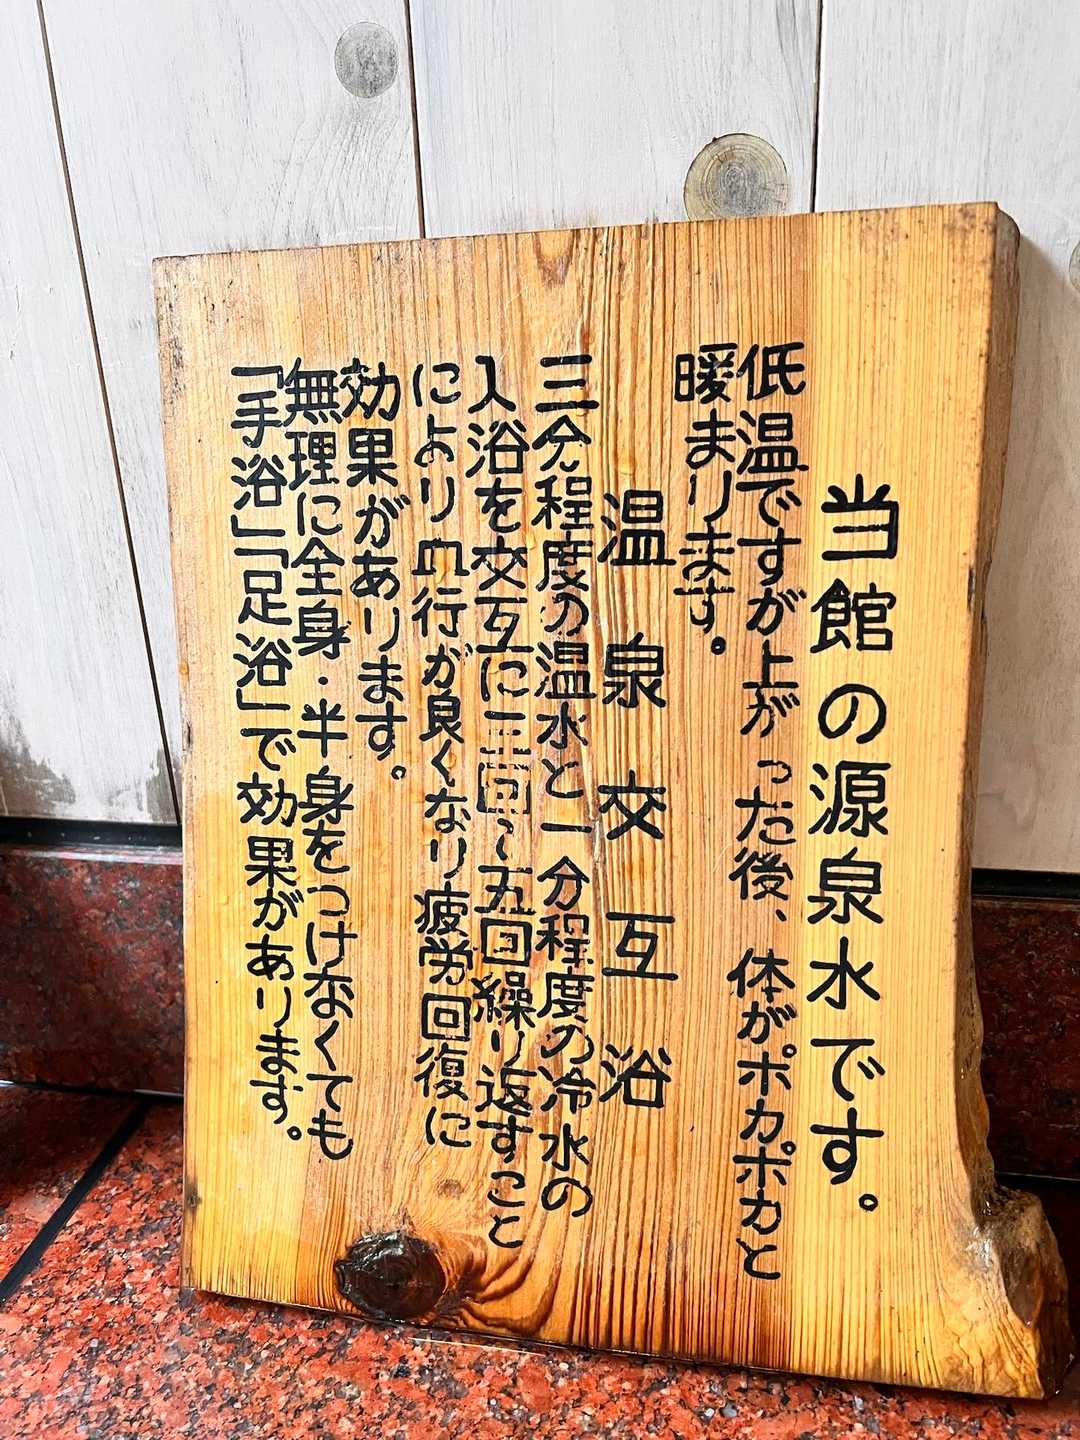 当館の源泉水です。
低温ですが上がった後、体がポカポカと
暖まります。
温泉交互浴
三分程度の温水と一分程度の冷水の
入浴を交互に三回～五回繰り返すこと
により血行が良くなり疲労回復に
効果があります。
無理に全身・半身をつけなくても
「手浴」「足浴」で効果があります。